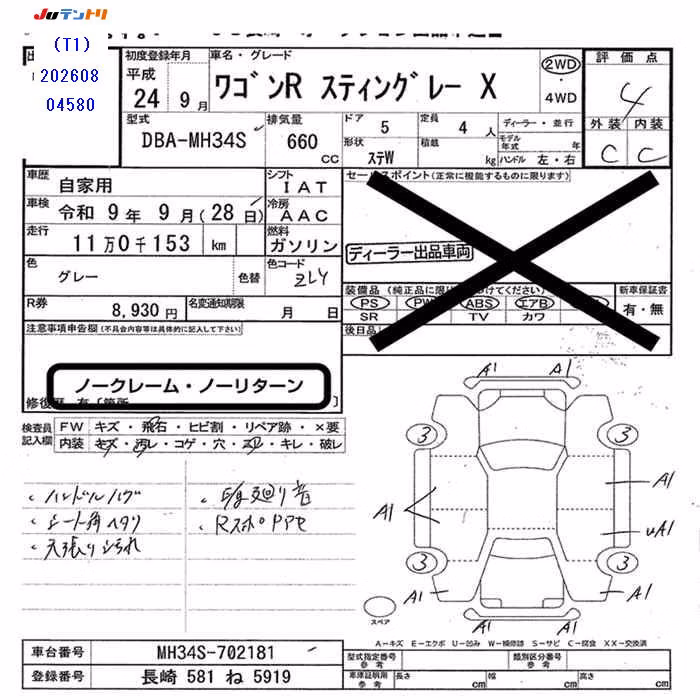 Juテントリ
(T1)
202608
04580
初度登録年月
平成
24 9月
車名・グレード
ワゴンR スティングレー X
2WD
・
4WD
評価点
4
外装 内装
C C
型式
DBA-MH34S
排気量
660
CC
ドア 5
定員 4 人
ディーラー・並行
形状 ステW
積載 kg
モデル年式 年
ハンドル 左・右
車歴 自家用
シフト IAT
車検 令和 9年 9月(28日)
冷房 AAC
走行 11万0千153 km
燃料 ガソリン
色 グレー 色替
色コード ZLY
R券 8,930円
名変通知期限 月 日
セールスポイント(正常に機能するものに限ります)
ディーラー出品車両
装備品
PS PW ABS エアB
SR TV カワ
新車保証書
有・無
後日品
注意事項申告欄(不具合内容等は具体的に記入して下さい)
ノークレーム・ノーリターン
修復歴 有
検査員記入欄
FW キズ・飛石・ヒビ割・リペア跡・×要
内装 キズ・汚レ・コゲ・穴・ヌレ・キレ・破レ
ハンドルハゲ
シート角ヘタリ
天張りシミられ
A1 A1
3 3
A1 A1
uA1
3 3
A1 A1
スペア
A-キズ E-エクボ U-凹み W-補修跡 S-サビ C-腐食 XX-交換済
車台番号 MH34S-702181
登録番号 長崎 581 ね 5919
型式指定番号 参考
類別区分番号 参考
車庫証明用 参考
長さ cm
幅 cm
高さ cm